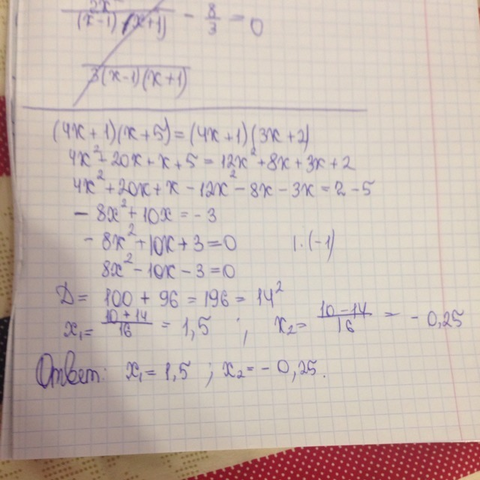 2x / (x-1)(x+1) - 8/3 = 0
3(x-1)(x+1)
(4x+1)(x+5)=(4x+1)(3x+2)
4x²+20x+x+5=12x²+8x+3x+2
4x²+20x+x-12x²-8x-3x=2-5
-8x²+10x=-3
-8x²+10x+3=0 |·(-1)
8x²-10x-3=0
D= 100+96=196=14²
x₁= 10+14/16 = 1,5 ; x₂= 10-14/16 = -0,25
Ответ: x₁=1,5 ; x₂=-0,25.